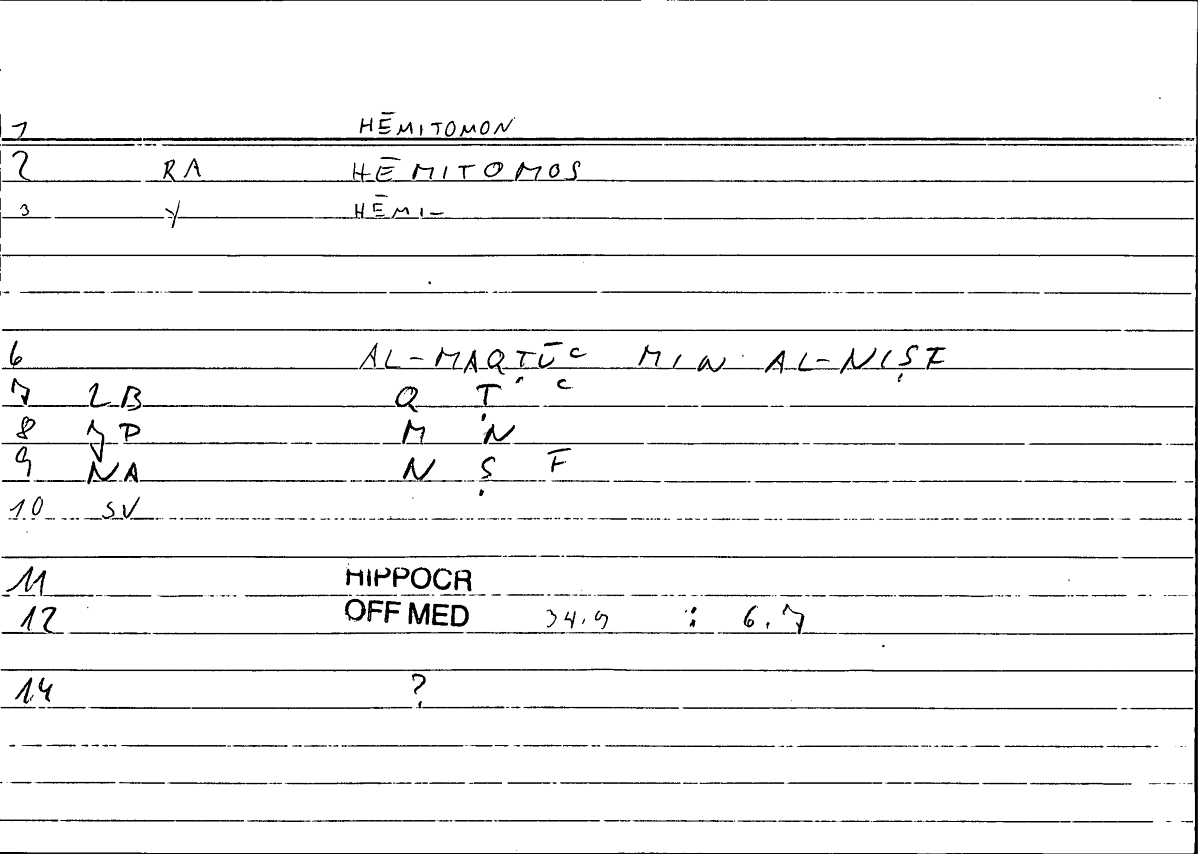 1 HĒMITOMON
2 RA HĒMITOMOS
3 Y HĒMI-
6 AL-MAQṬŪC MIN AL-NIṢF
7 2B Q Ṭ C
8 7P M N
9 NA N Ṣ F
10 SV
11 HIPPOCR
12 OFF MED 34.9 : 6.7
14 ?